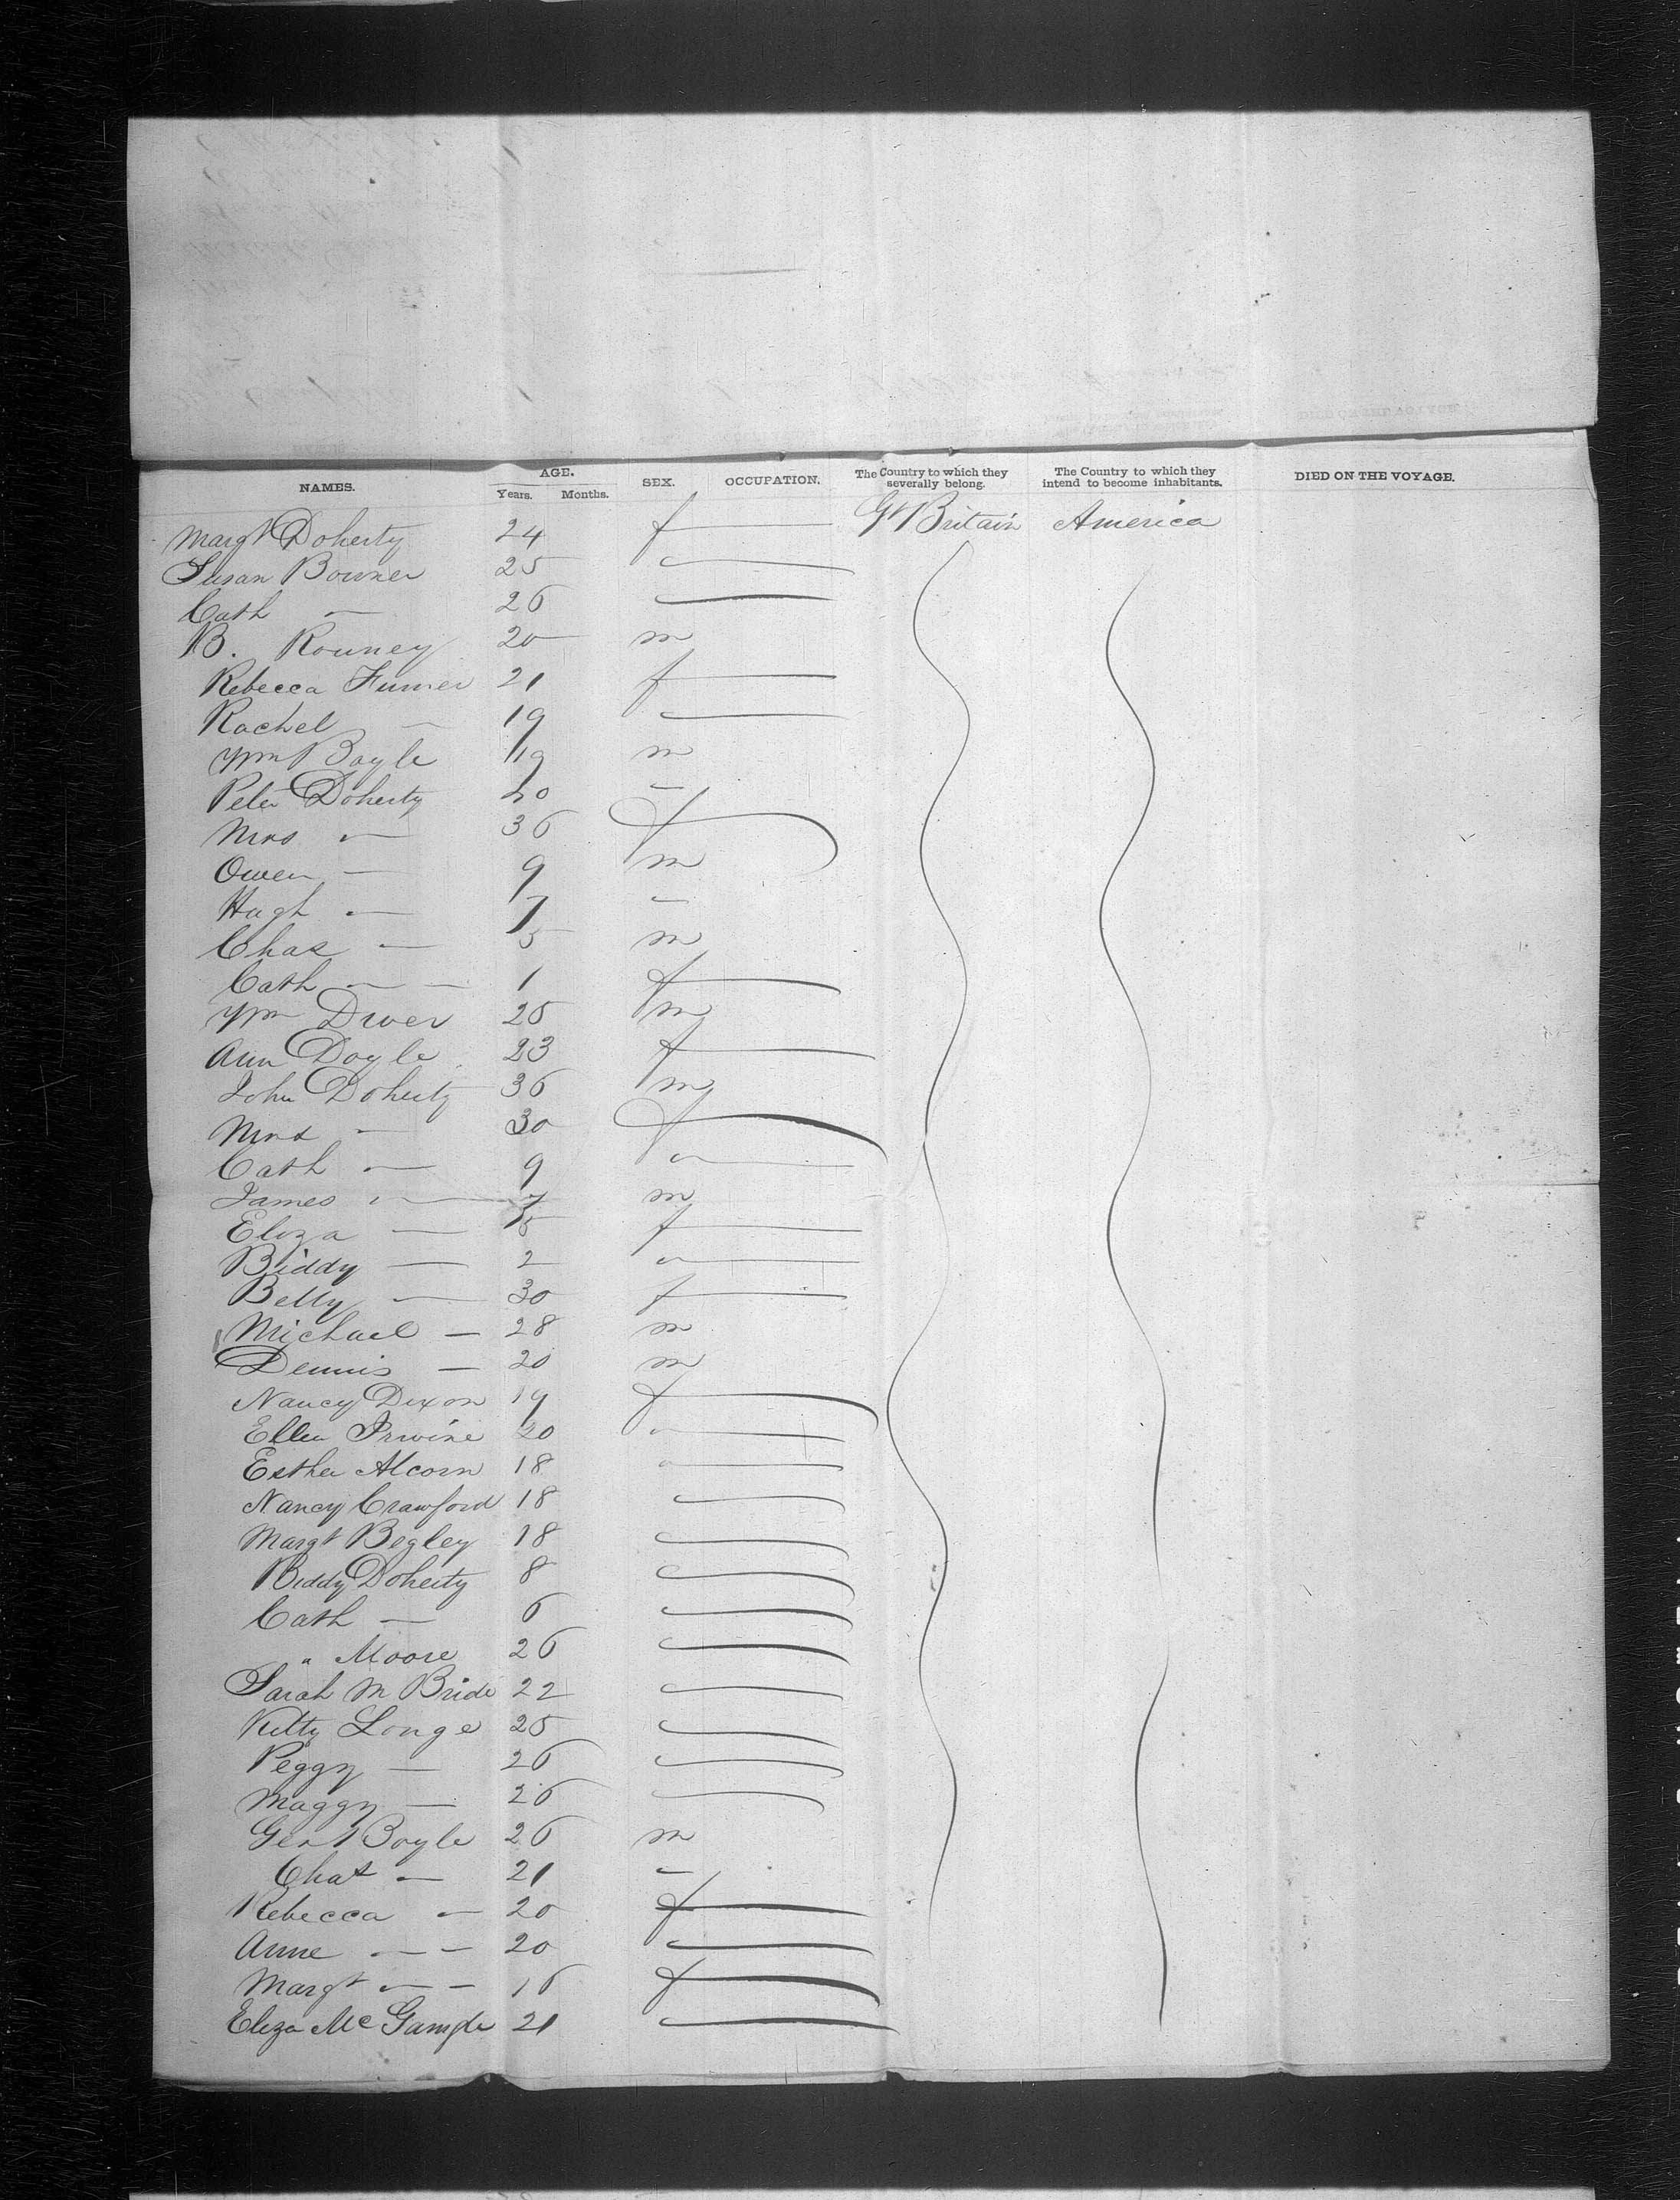 NAMES. AGE. Years. Months. SEX. OCCUPATION. The Country to which they severally belong. The Country to which they intend to become inhabitants. DIED ON THE VOYAGE.
Margt Doherty 24 f — Gt Britain America
Susan Bowner 25 —
Cath — 26 —
B. Rouney 20 m
Rebecca Fumer 21 f —
Rachel — 19 —
Wm Boyle 19 m
Peter Doherty 20 —
Mrs — 36 f
Owen — 9 m
Hugh — 7 —
Chas — 5 m
Cath — — 1 f —
Wm Dwer 25 m
Ann Doyle 23 f —
John Doherty 36 m
Mrs — 30 f —
Cath — 9 " —
James — 7 m
Eliza — 5 f —
Biddy — 2 " —
Betty — 30 f —
Michael — 28 m
Dennis — 20 m
Nancy Dixon 19 f —
Ellen Irwine 20 " —
Esther Alcorn 18 " —
Nancy Crawford 18 —
Margt Begley 18 —
Biddy Doherty 8 —
Cath — 6 —
" Moore 26 —
Sarah Mc Bride 22 —
Kitty Longe 25 —
Peggy — 26 —
Maggy — 26 —
Boyle 26 m
Chas — 21 —
Rebecca — 20 f —
Anne — — 20 —
Margt — — 16 f —
Eliza Mc 21 —